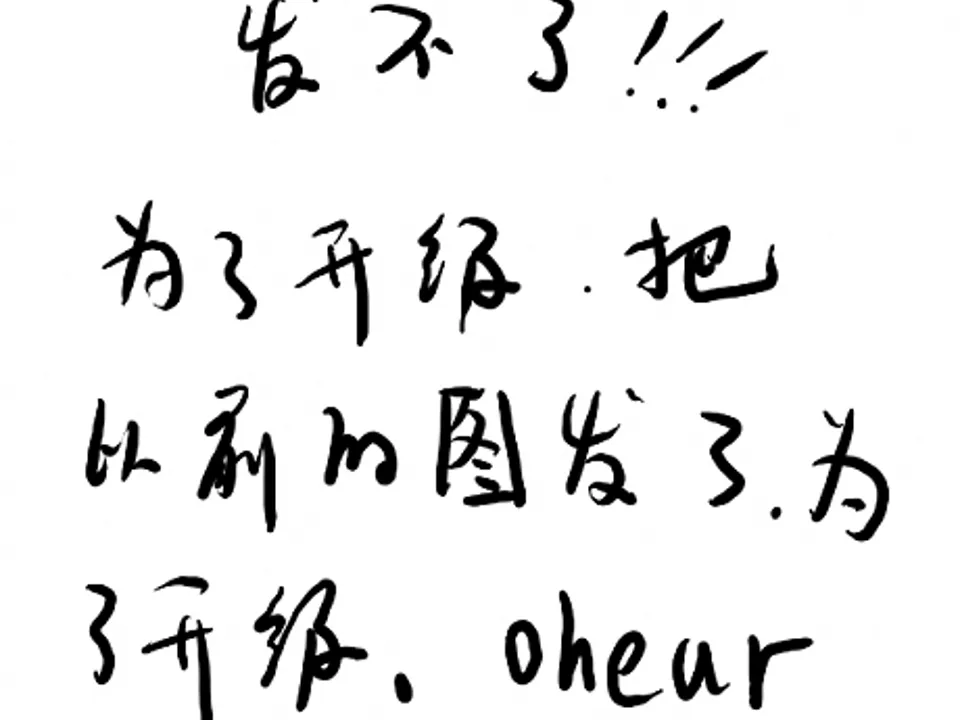 发不了!!!
为了升级.把
以前的图发了.为
了升级.oheur